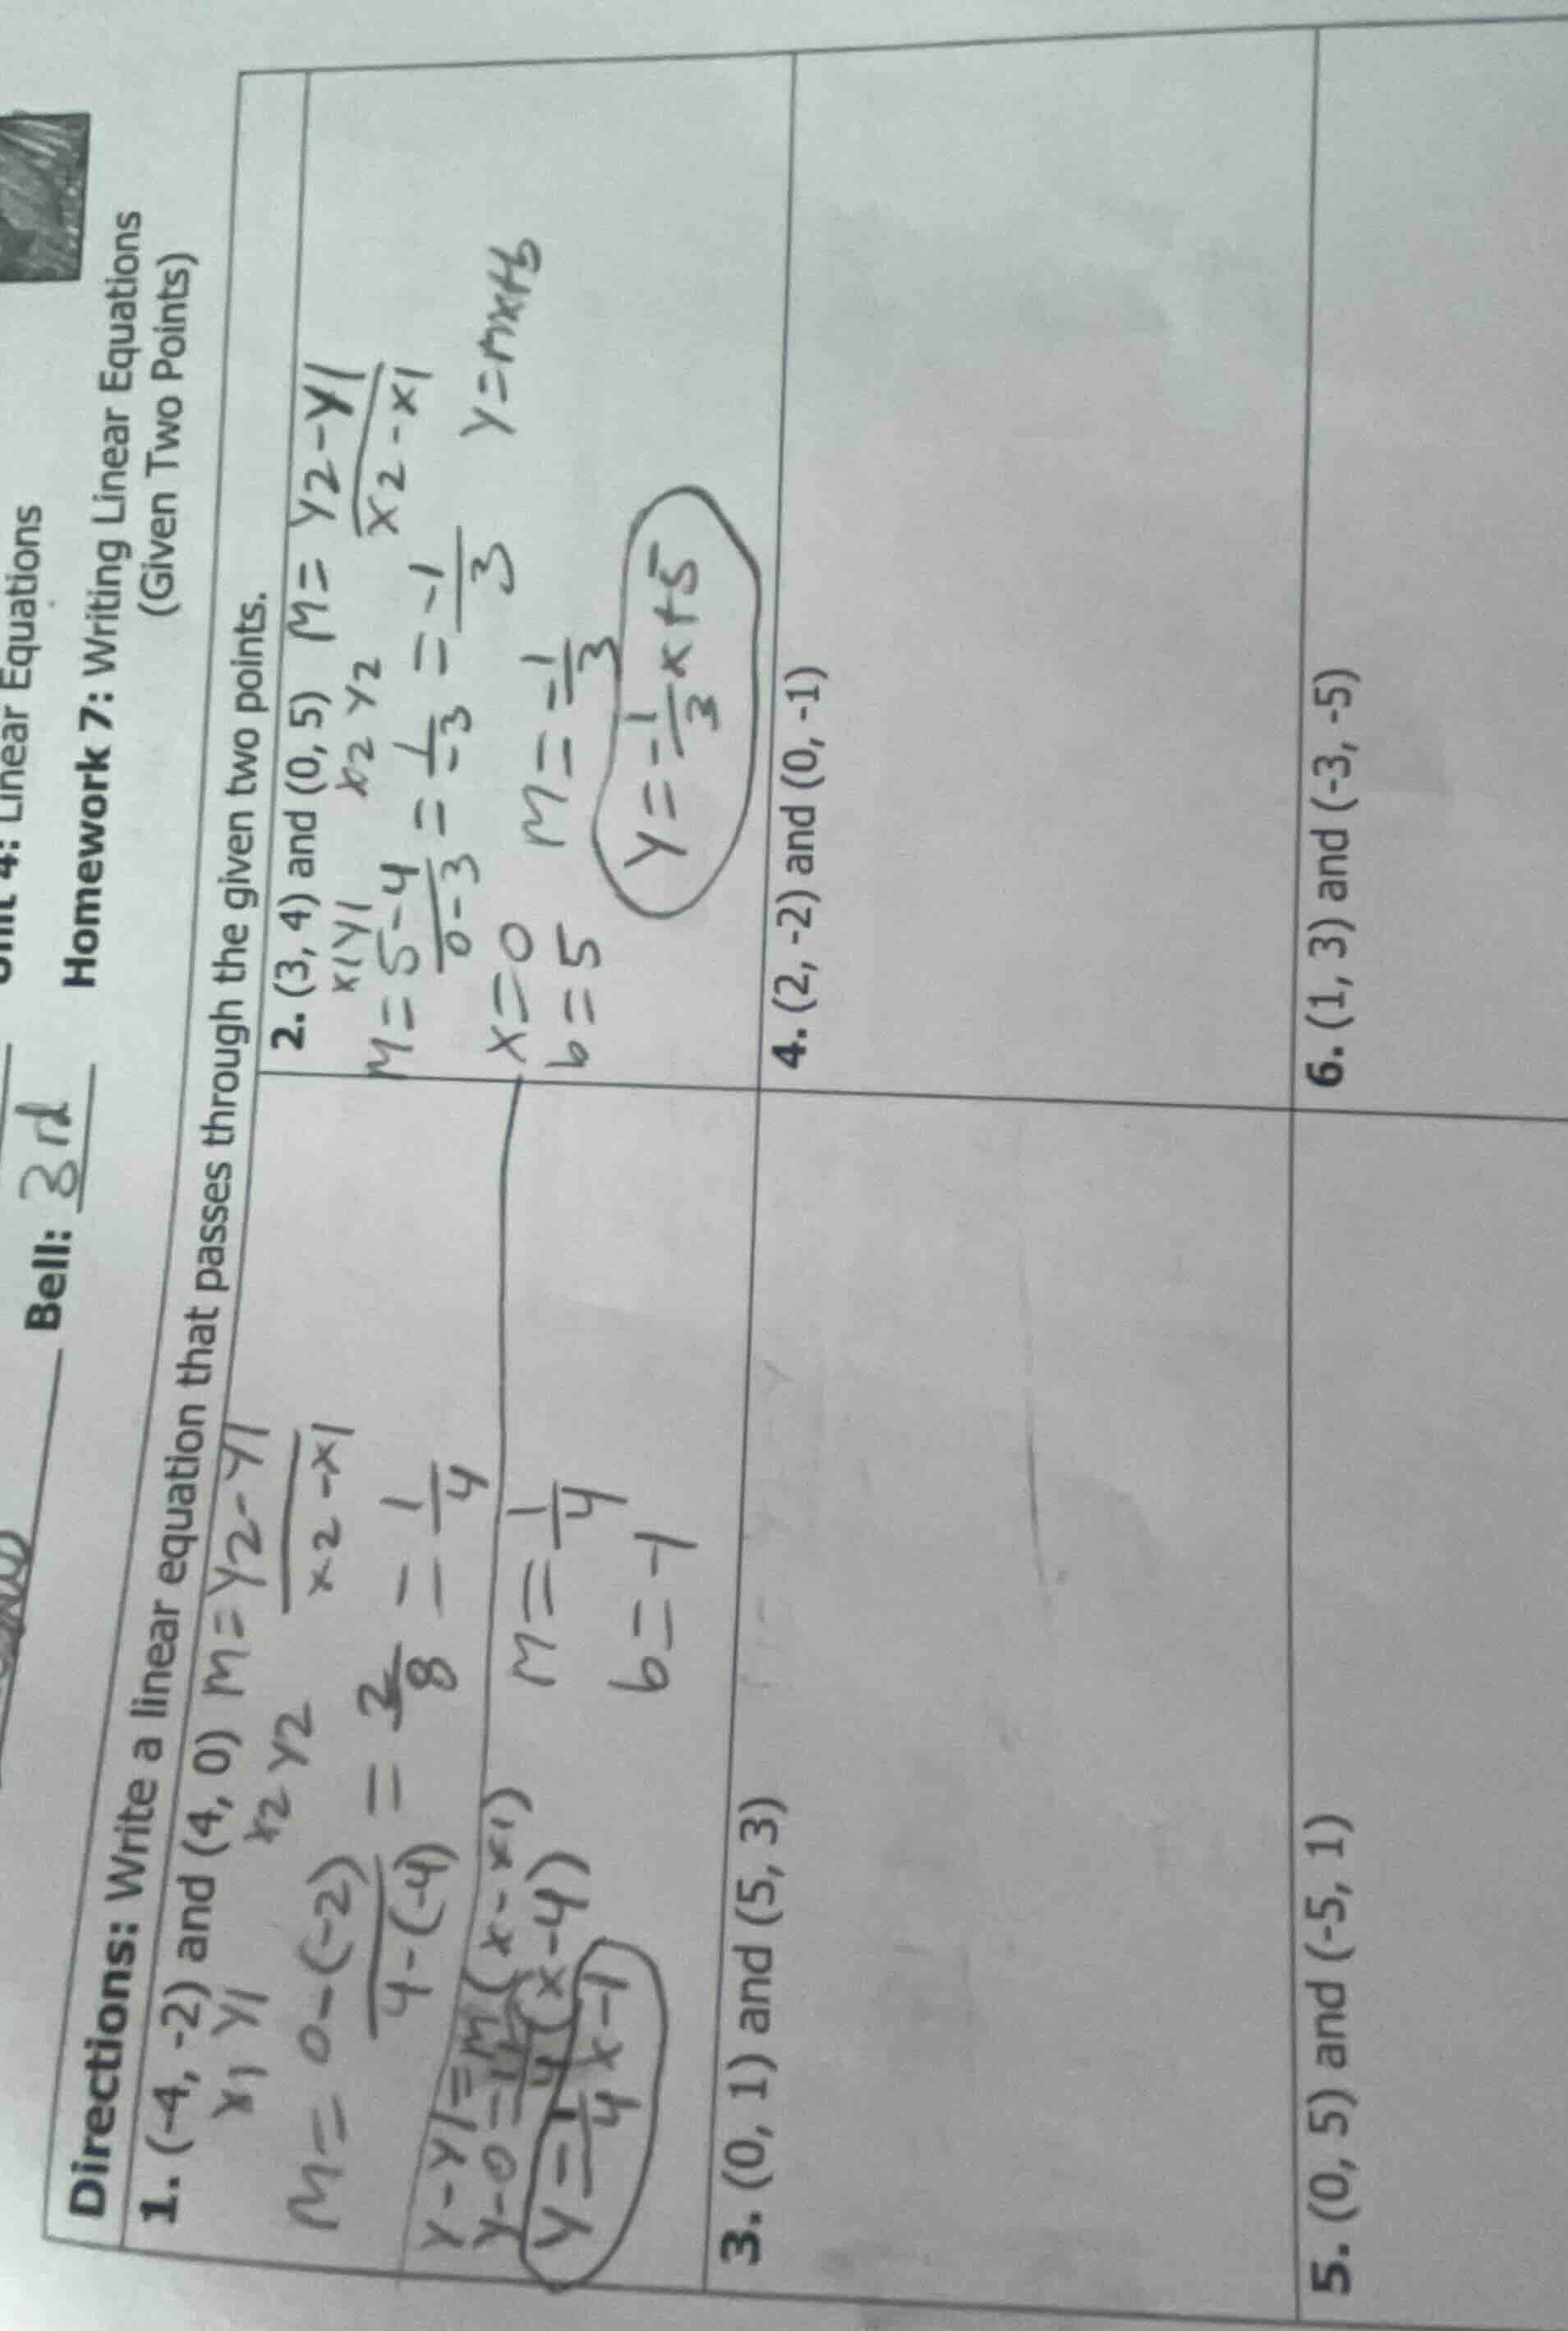 Unit 4: Linear Equations
Bell: 3rd
Homework 7: Writing Linear Equations
(Given Two Points)
Directions: Write a linear equation that passes through the given two points.
1. (-4, -2) and (4, 0) M = y2 - y1
x2 - x1
x1 y1 x2 y2
M = 0 - (-2) = 2 = 1
4 - (-4) 8 4
y - y1 = M(x - x1)
y - 0 = 1/4 (x - 4)
y = 1/4 x - 1
M = 1/4
b = -1
2. (3, 4) and (0, 5) M = y2 - y1
x2 - x1
x1 y1 x2 y2
M = 5 - 4 = 1 = -1
0 - 3 -3 3
y = mx + b
x = 0 M = -1/3
b = 5
y = -1/3 x + 5
3. (0, 1) and (5, 3)
4. (2, -2) and (0, -1)
5. (0, 5) and (-5, 1)
6. (1, 3) and (-3, -5)